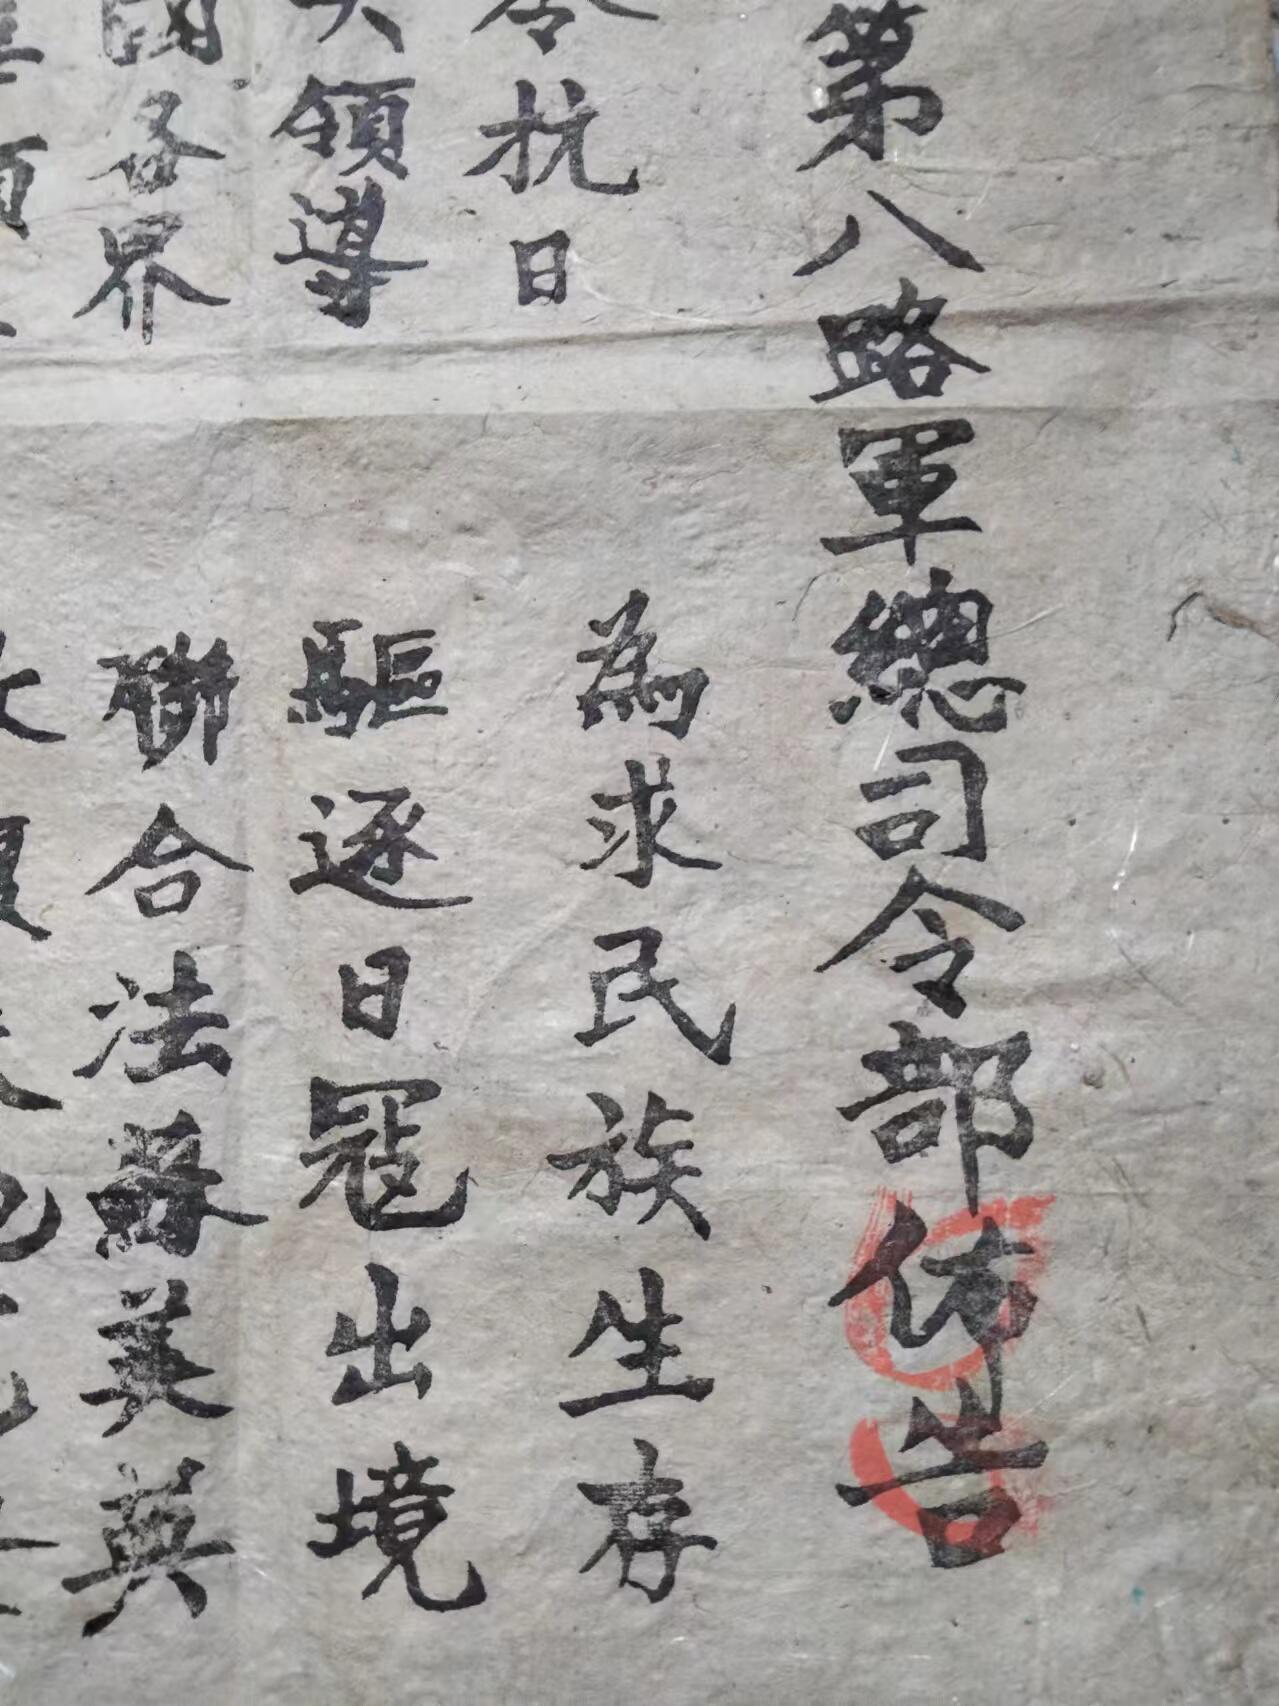 第八路軍總司令部佈告
令抗日
為求民族生存
領導
驅逐日寇出境
國各界
聯合法蘇美英